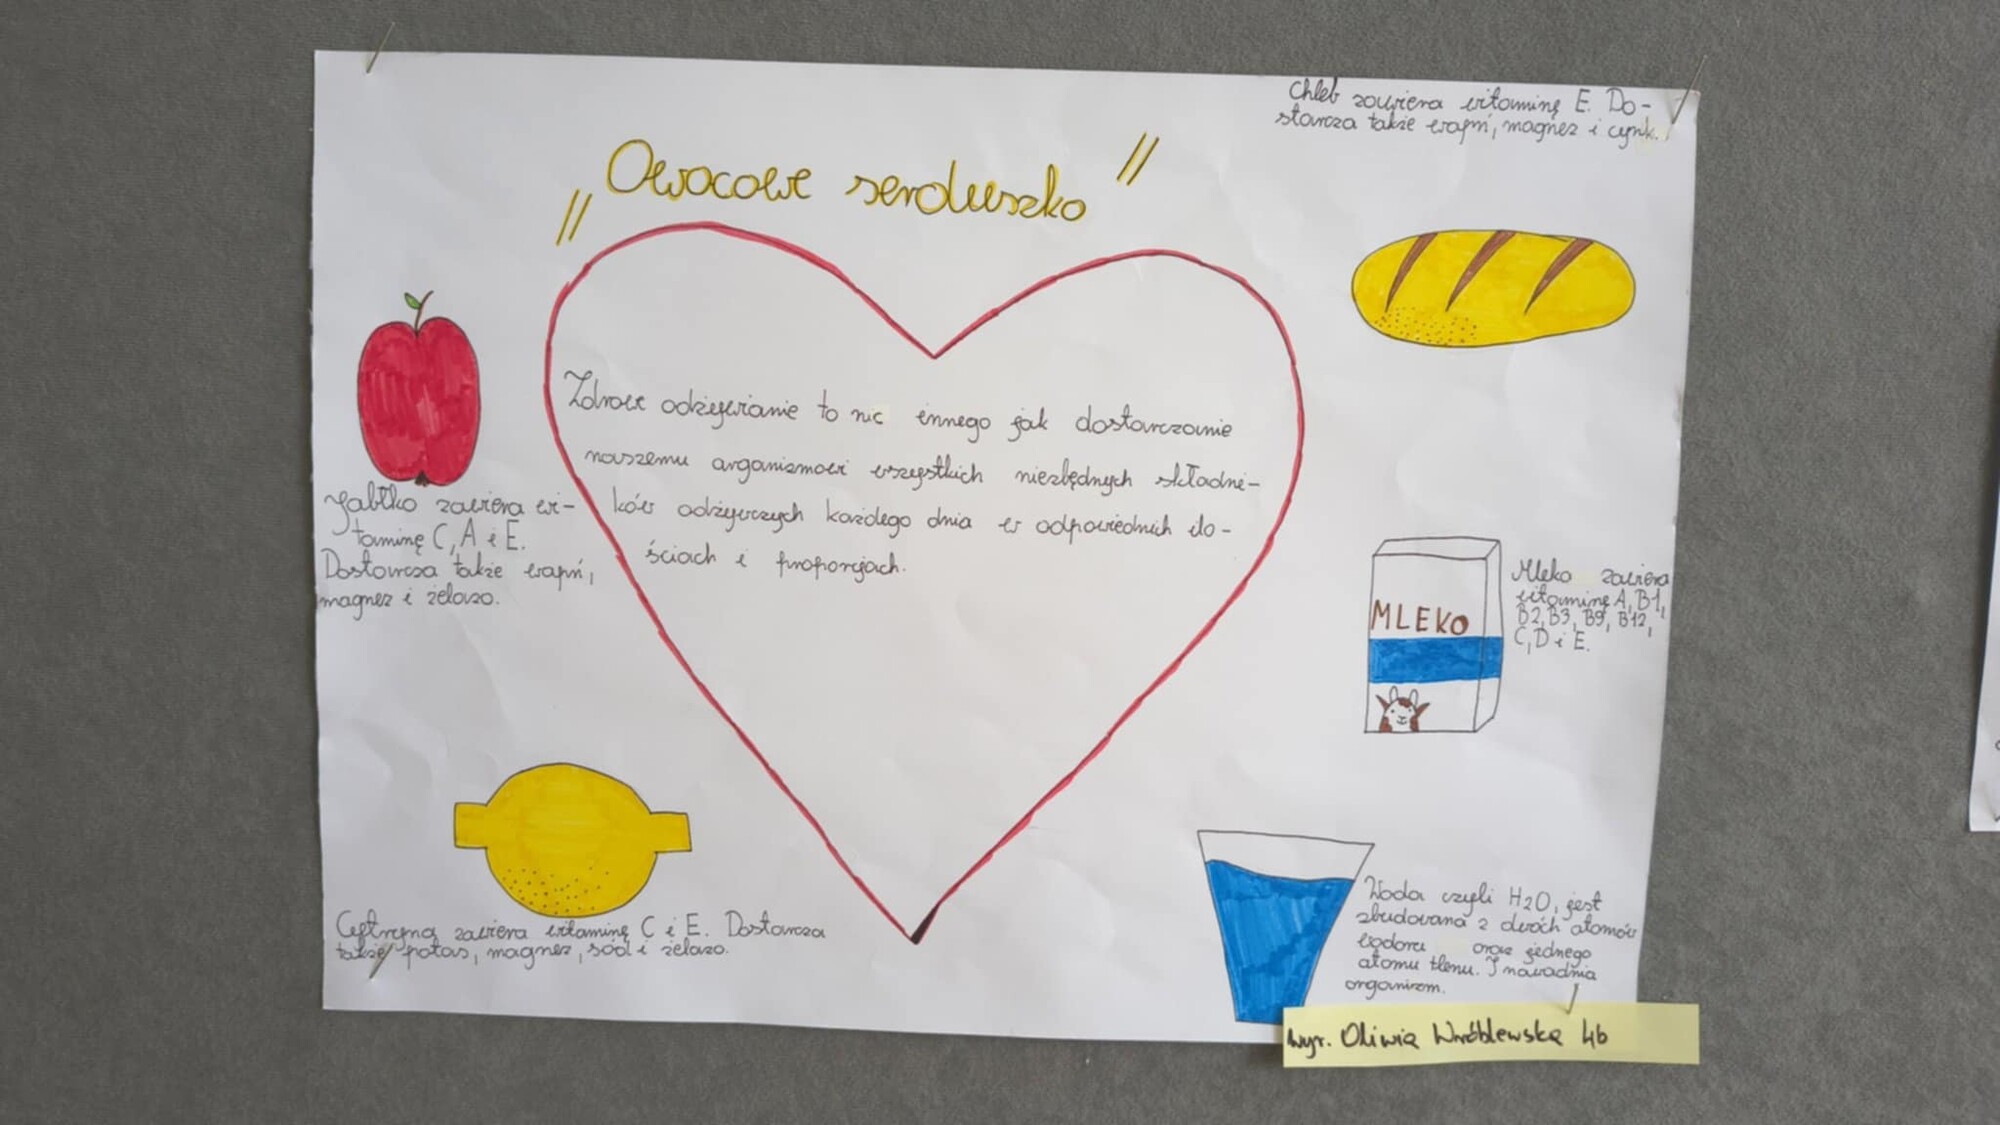 „Owocowe serduszko”
Chleb zawiera witaminę E. Do-
starcza także wapń, magnez i cynk.
Zdrowe odżywianie to nic innego jak dostarczanie
naszemu organizmowi wszystkich niezbędnych składni-
ków odżywczych każdego dnia w odpowiednich ilo-
ściach i proporcjach.
Jabłko zawiera wi-
taminę C, A i E.
Dostarcza także wapń,
magnez i żelazo.
MLEKO
Mleko zawiera
witaminę A, B1,
B2, B3, B9, B12,
C, D i E.
Cytryna zawiera witaminę C i E. Dostarcza
także potas, magnez, sód i żelazo.
Woda czyli H2O, jest
zbudowana z dwóch atomów
wodoru oraz jednego
atomu tlenu. I nawadnia
organizm.
wyk. Oliwia Wróblewska 4b